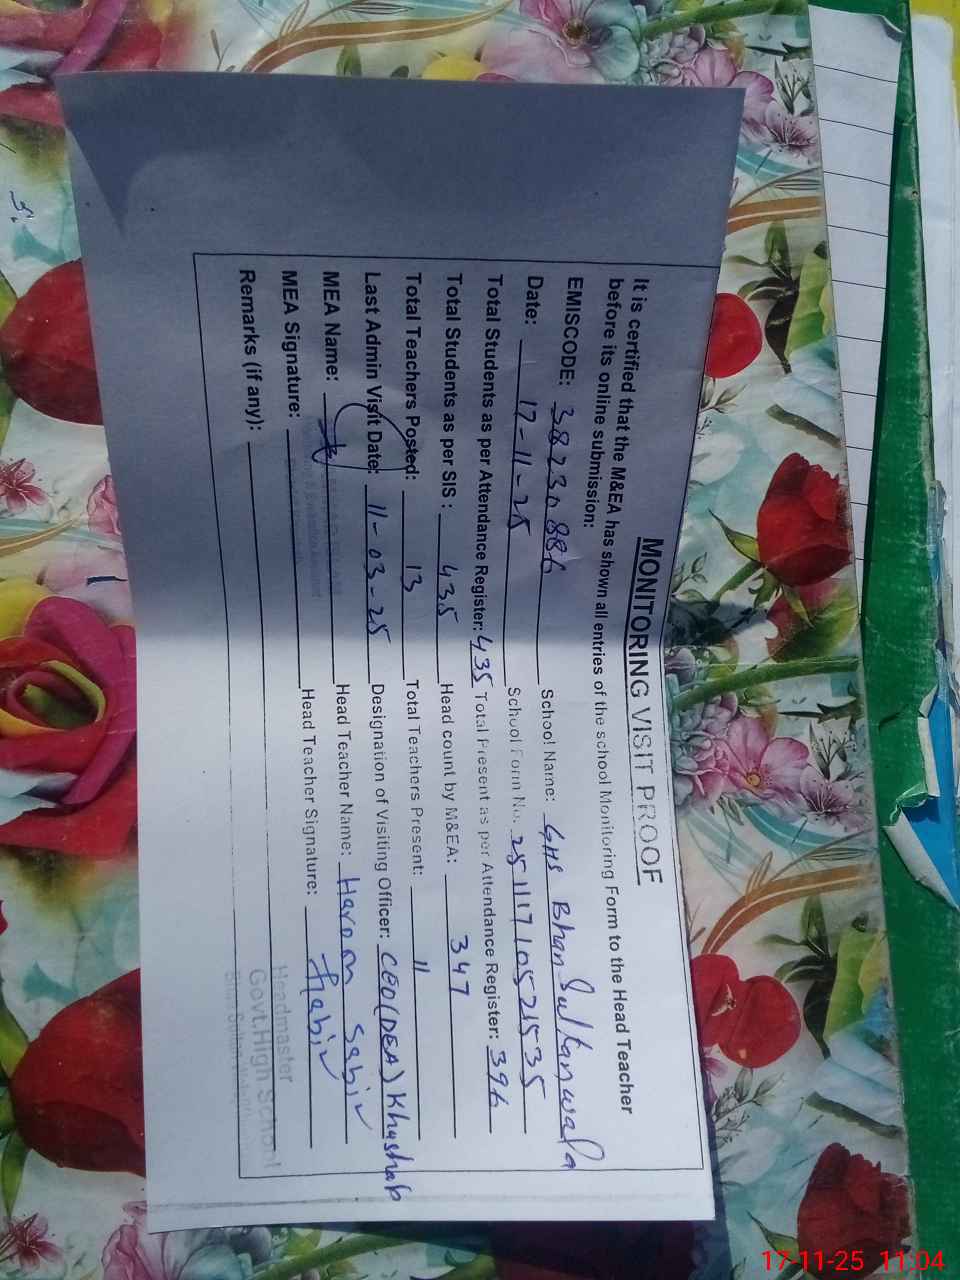 MONITORING VISIT PROOF
It is certified that the M&EA has shown all entries of the school Monitoring Form to the Head Teacher
before its online submission:
EMISCODE: 38230886 School Name: GHS Bhan Sultanwala
Date: 17-11-25 School Form No. 25111710521535
Total Students as per Attendance Register: 435 Total Present as per Attendance Register: 396
Total Students as per SIS : 435 Head count by M&EA: 347
Total Teachers Posted: 13 Total Teachers Present: 11
Last Admin Visit Date: 11-03-25 Designation of Visiting Officer: CEO(DEA) Khushab
MEA Name: Head Teacher Name: Haroon Sabir
MEA Signature: Head Teacher Signature: Sabir
Remarks (if any):
Headmaster
Govt.High School
17-11-25 11:04